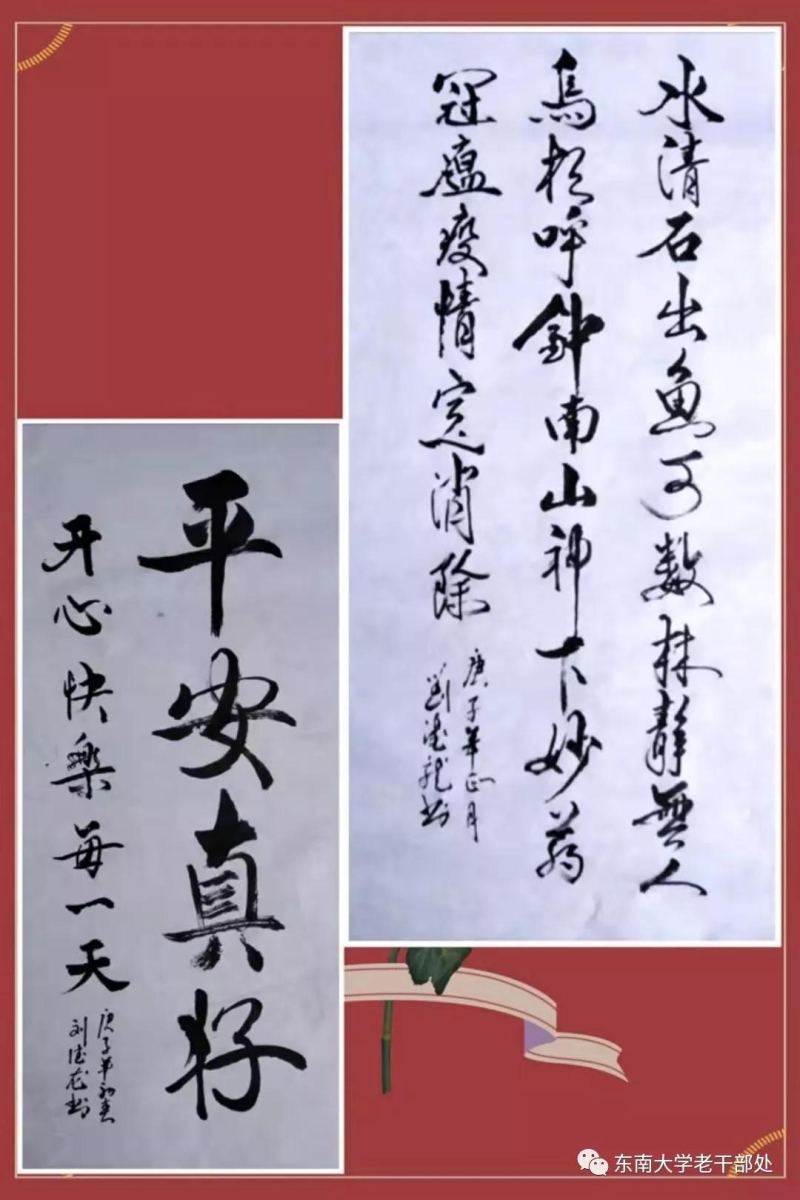 水清石出魚可数林静無人
鳥相呼鈡南山神下妙药
冠瘟疫情定消除
庚子年正月
平安真好
开心快樂每一天
庚子年初春
东南大学老干部处